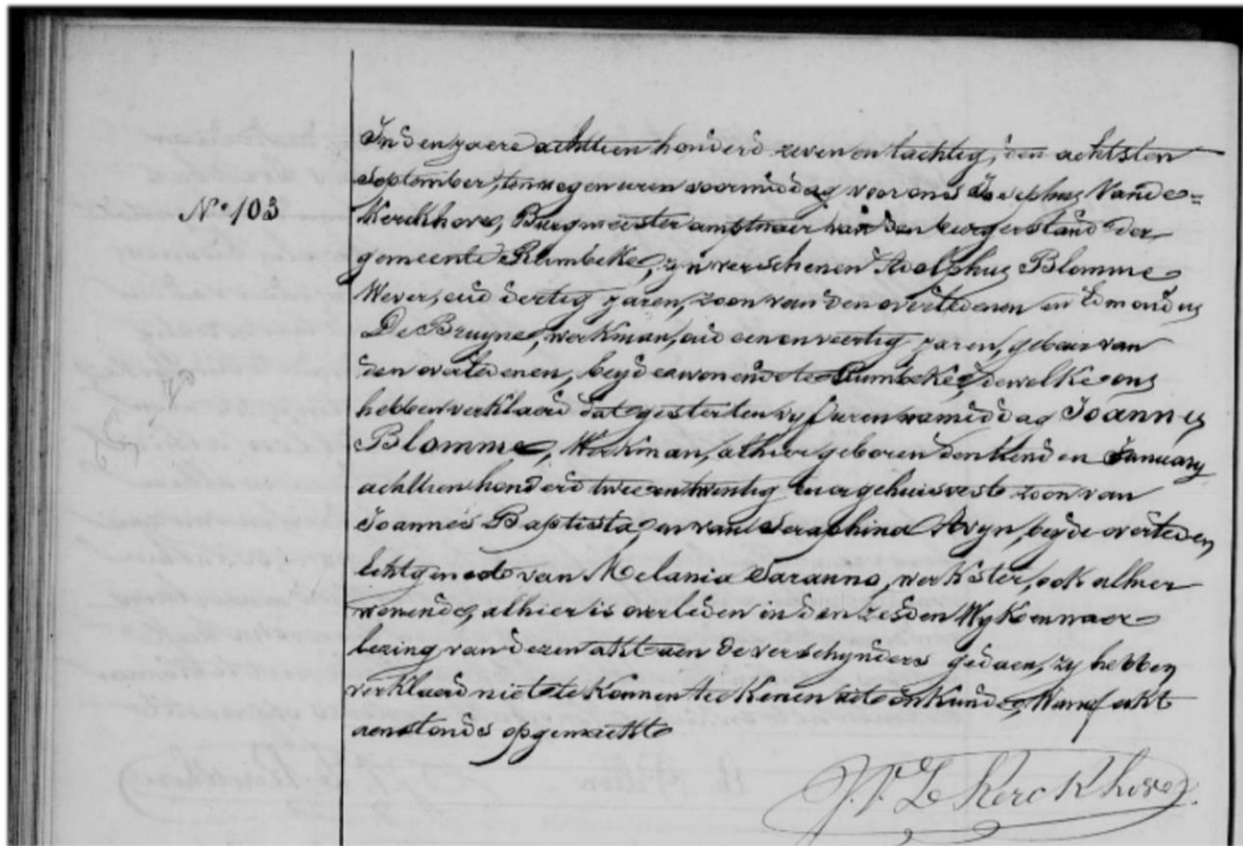 In den jaere achttien honderd zeven en tachtig, den achtsten
September, ten negen uren voormiddag voor ons Josephus Vande=
N.º 103
Kerckhove, Burgmeester amptnaer van den burgerstand der
gemeente Rumbeke, zyn verschenen Adolphus Blomme
Wever, oud dertig jaren, zoon van den overledenen en Edmondus
De Bruyne, werkman, oud een en veertig jaren, gebuer van
den overledenen, beyde wonende te Rumbeke, dewelke ons
hebben verklaard dat gisteren ten vyf uren namiddag Joannes
Blomme, Werkman, alhier geboren den January
achttien honderd twee en twintig en er gehuisvest zoon van
Joannes Baptista, en van Seraphina Avyn, beyde overleden
Echtgenoot van Melania werkster, ook alhier
wonende, alhier is overleden in den zesden Wyk en naer
lezing van dezen akt aen de verschynders gedaen, zy hebben
verklaard niet te konnen teekenen uit onkunde, Waraf akt
aenstonds opgemaekt
Kerckhove